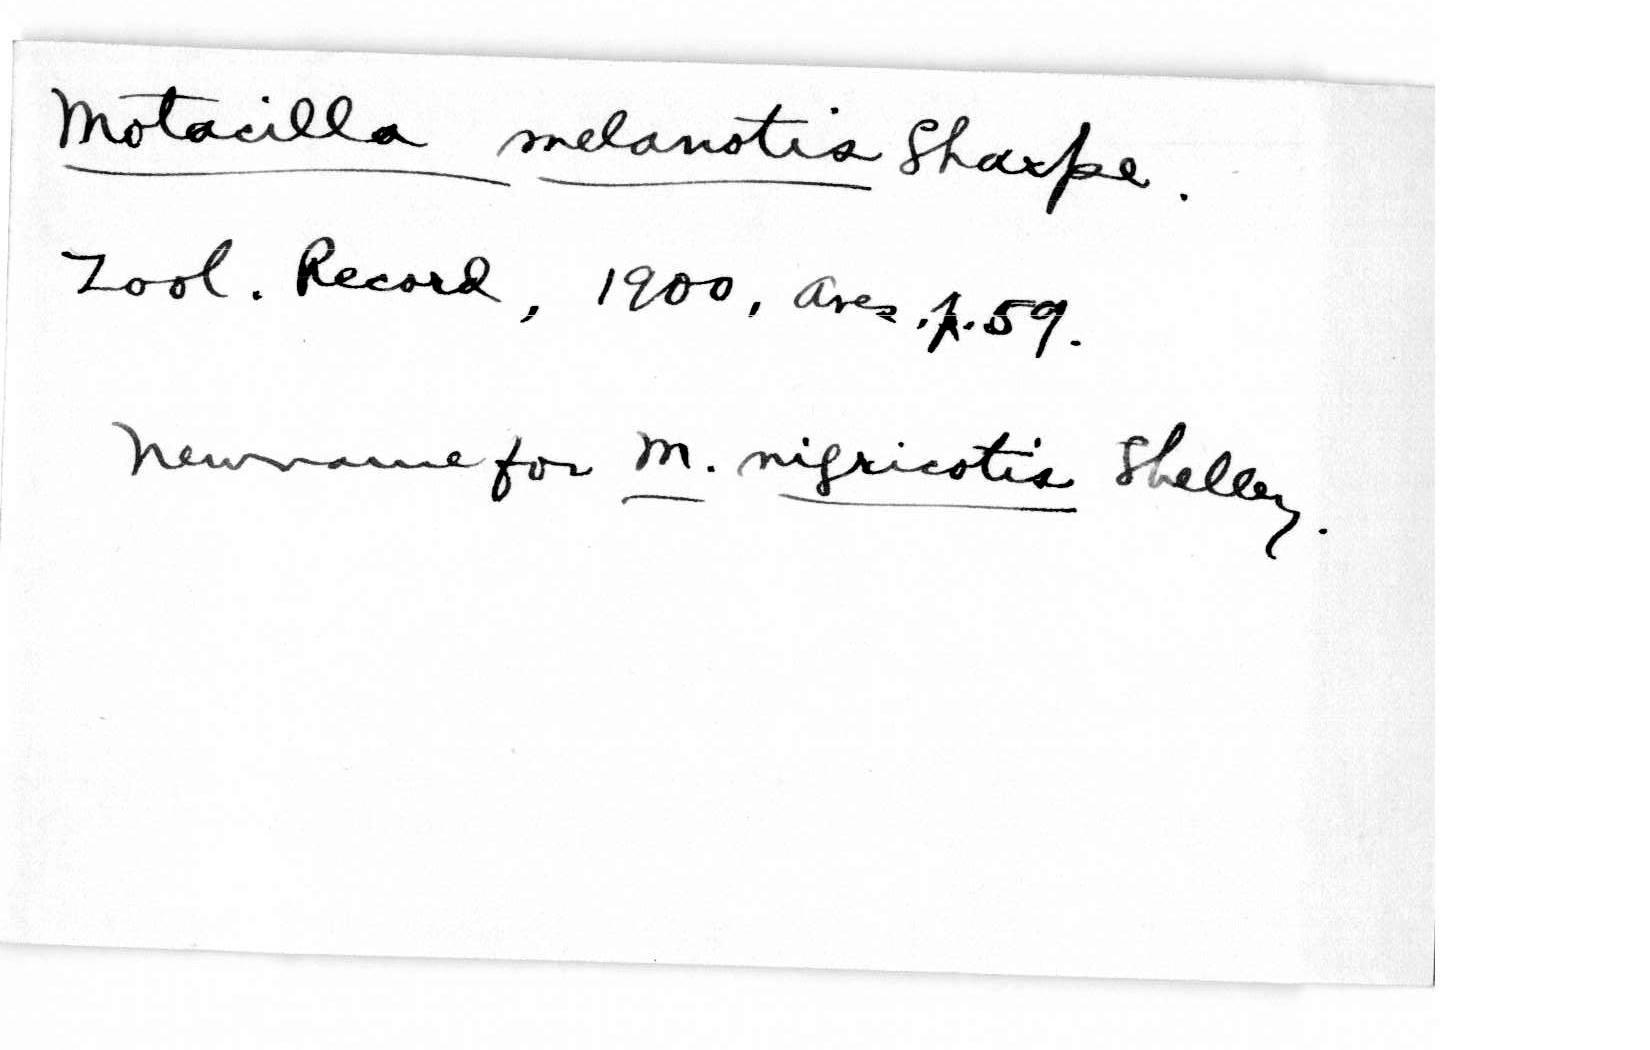 Motacilla melanotis Sharpe.
Zool. Record, 1900, Aves, p. 59.
New name for M. nigricotis Shelley.